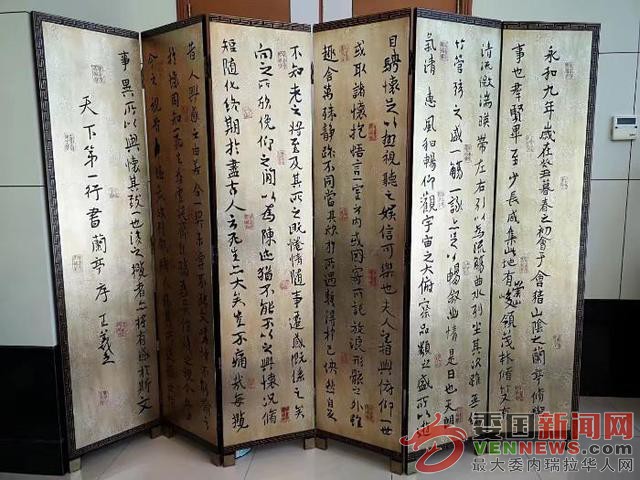 永和九年歲在癸丑暮春之初會于會稽山陰之蘭亭脩稧
事也羣賢畢至少長咸集此地有崇山峻領茂林脩竹又有
清流激湍暎帶左右引以為流觴曲水列坐其次雖無絲
竹管弦之盛一觴一詠亦足以暢敘幽情是日也天朗
氣清惠風和暢仰觀宇宙之大俯察品類之盛所以遊
目騁懷足以極視聽之娛信可樂也夫人之相與俯仰一世
或取諸懷抱悟言一室之內或因寄所託放浪形骸之外雖
趣舍萬殊靜躁不同當其欣於所遇暫得於己快然自足
不知老之將至及其所之既惓情隨事遷感慨係之矣
向之所欣俛仰之間以為陳迹猶不能不以之興懷況脩
短隨化終期於盡古人云死生亦大矣豈不痛哉每攬
昔人興感之由若合一契未嘗不臨文嗟悼不能喻之
於懷固知一死生為虛誕齊彭殤為妄作
今之視昔
事異所以興懷其致一也後之攬者亦將有感於斯文
天下第一行書蘭亭序 王羲之
委国新闻网
VENNEWS.COM
最大委内瑞拉华人网